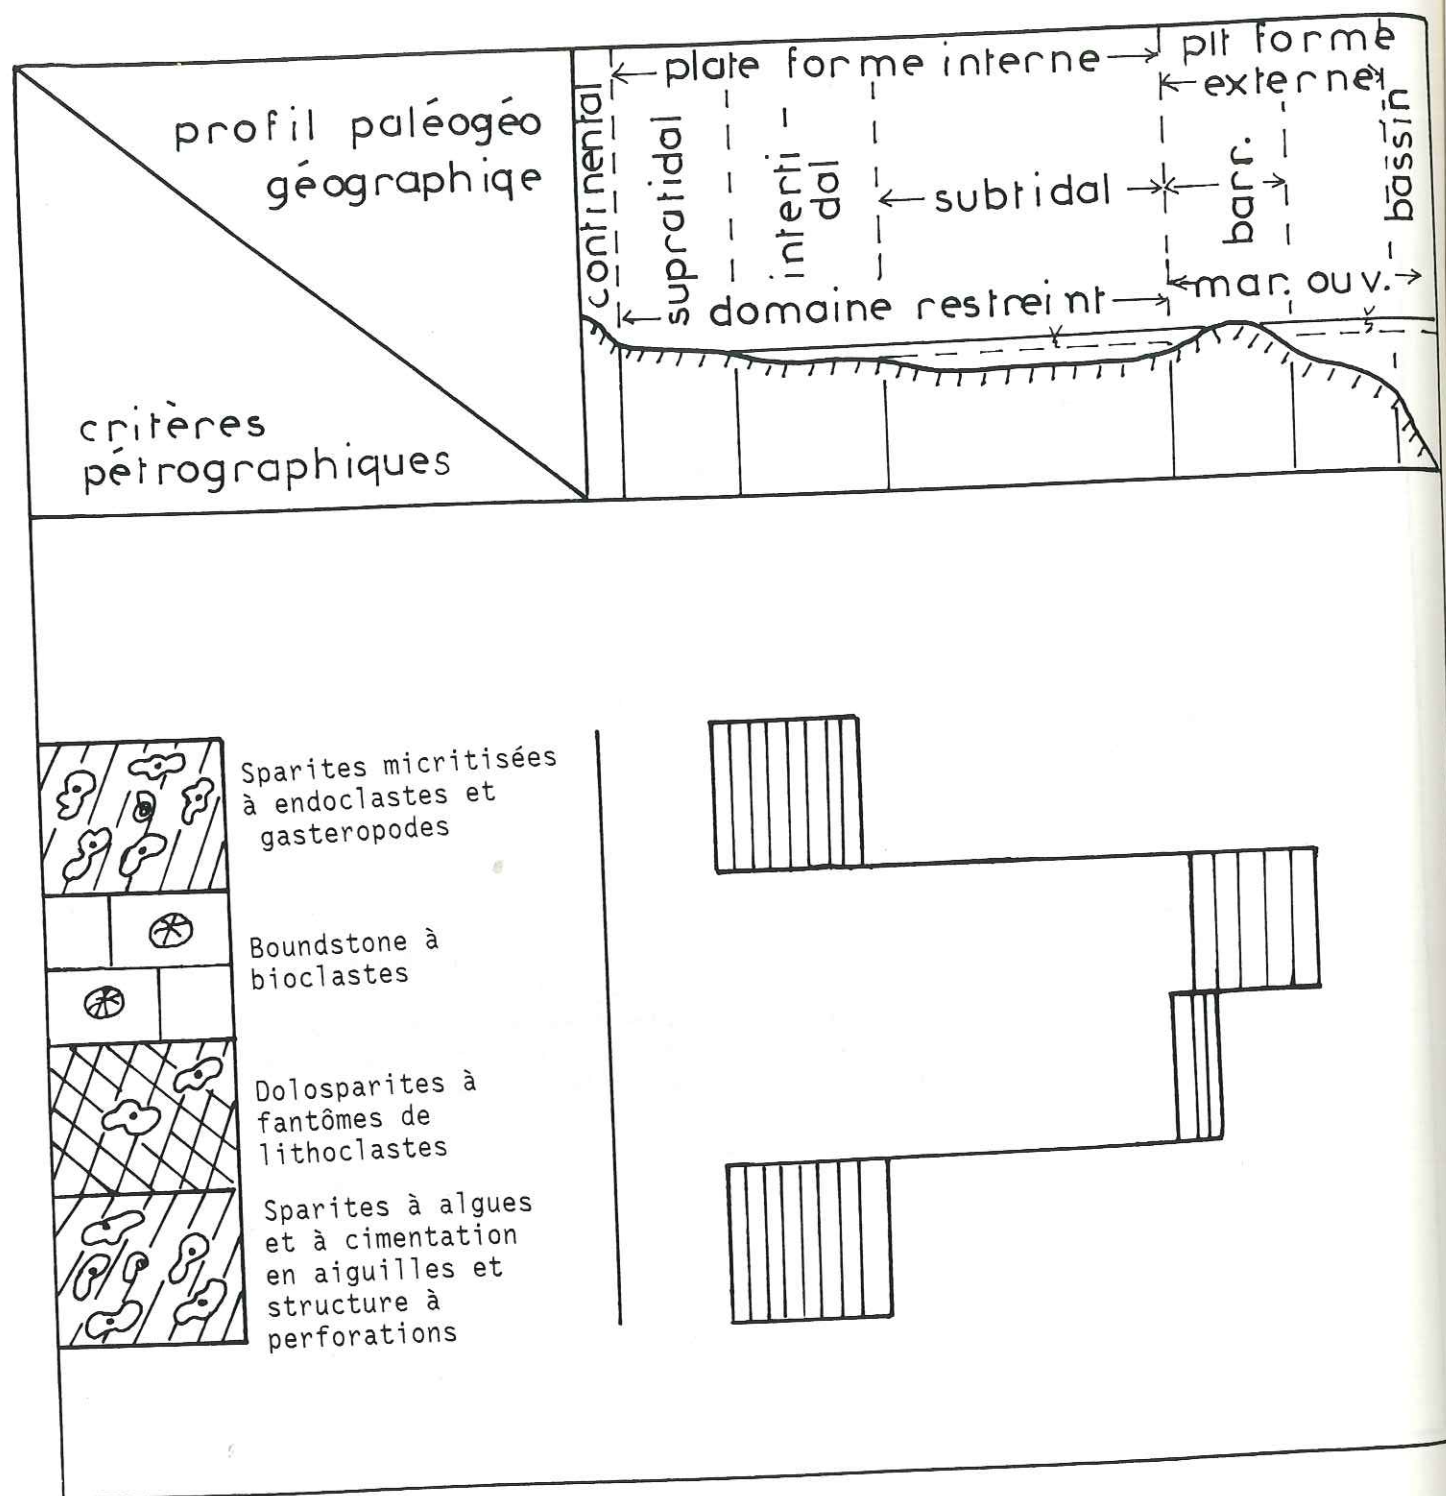 profil paléogéo
géographiqe
critères
pétrographiques
continental
plate forme interne
plt forme
externe
supratidal
interti-
dal
subtidal
barr.
bassin
domaine restreint
mar. ouv.
Sparites micritisées
à endoclastes et
gasteropodes
Boundstone à
bioclastes
Dolosparites à
fantômes de
lithoclastes
Sparites à algues
et à cimentation
en aiguilles et
structure à
perforations